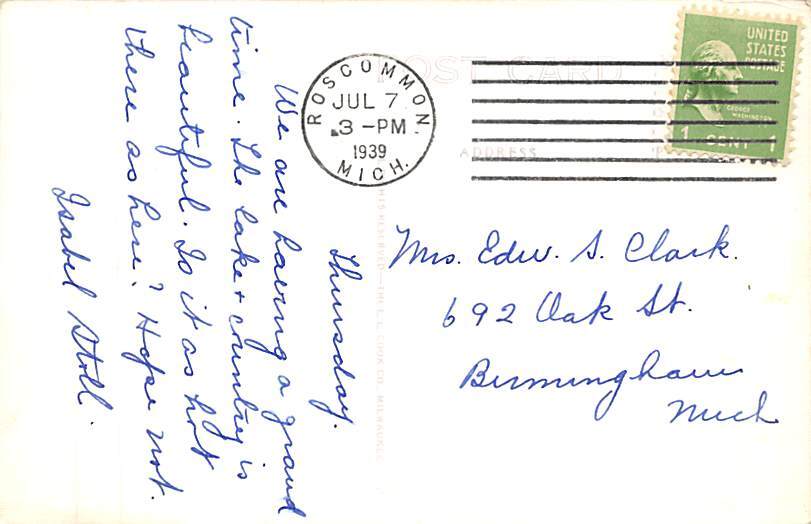 POST CARD
ADDRESS
ROSCOMMON
JUL 7
3-PM
1939
MICH.
UNITED
STATES
POSTAGE
GEORGE
WASHINGTON
1 CENT 1
Thursday.
We are having a grand
time. The lake + country is
beautiful. Is it as hot
there as here? Hope not.
Isabel Stoll.
Mrs. Edw. S. Clark.
692 Oak St.
Birmingham
Mich
RESERVED—THE L. L. COOK CO. MILWAUKEE